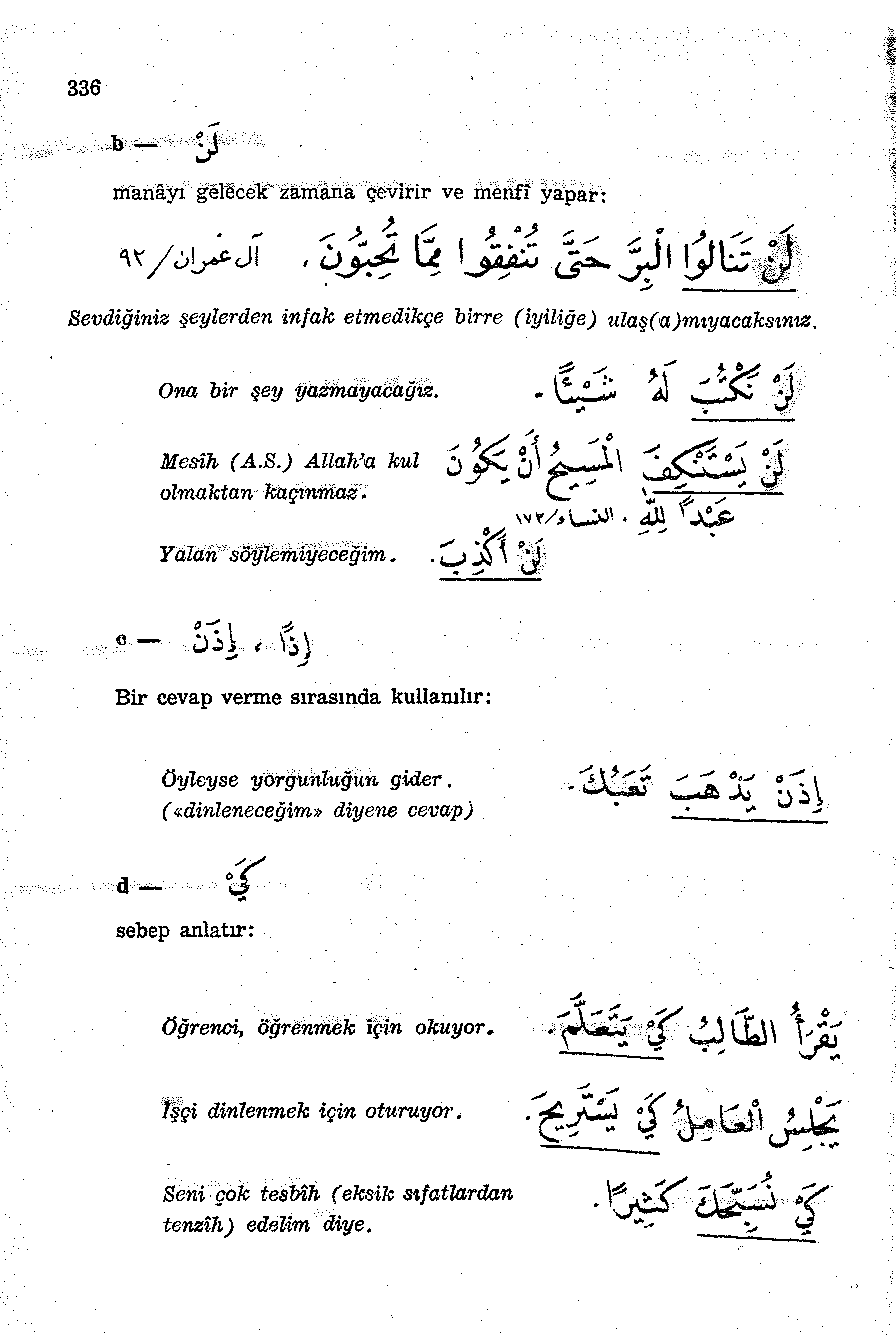 336
b — لَنْ
manâyı gelecek zamana çevirir ve menfî yapar:
لَنْ تَنَالوُا الْبِرَّ حَتَّى تُنْفِقُوا مِمَّا تُحِبوُّنَ . آل عمران/٩٢
Sevdiğiniz şeylerden infak etmedikçe birre (iyiliğe) ulaş(a)mıyacaksınız.
Ona bir şey yazmayacağız. لَنْ نَكْتُبَ لَهُ شَيْئًا .
Mesîh (A.S.) Allah'a kul لَنْ يَسْتَنْكِفَ الْمَسِيحُ أَنْ يَكُونَ
olmaktan kaçınmaz. عَبْداً لِلّٰهِ . النساء/١٧٢
Yalan söylemiyeceğim. لَنْ أَكْذِبَ .
c — إِذًا ، إِذَنْ
Bir cevap verme sırasında kullanılır:
Öyleyse yorgunluğun gider. إِذَنْ يَذْهَبَ تَعَبُكَ .
(«dinleneceğim» diyene cevap)
d — كَيْ
sebep anlatır:
Öğrenci, öğrenmek için okuyor. يَقْرَأُ الطَّالِبُ كَيْ يَتَعَلَّمَ .
İşçi dinlenmek için oturuyor. يَجْلِسُ الْعَامِلُ كَيْ يَسْتَرِيحَ .
Seni çok tesbîh (eksik sıfatlardan كَيْ نُسَبِّحَكَ كَثِيرًا .
tenzîh) edelim diye.